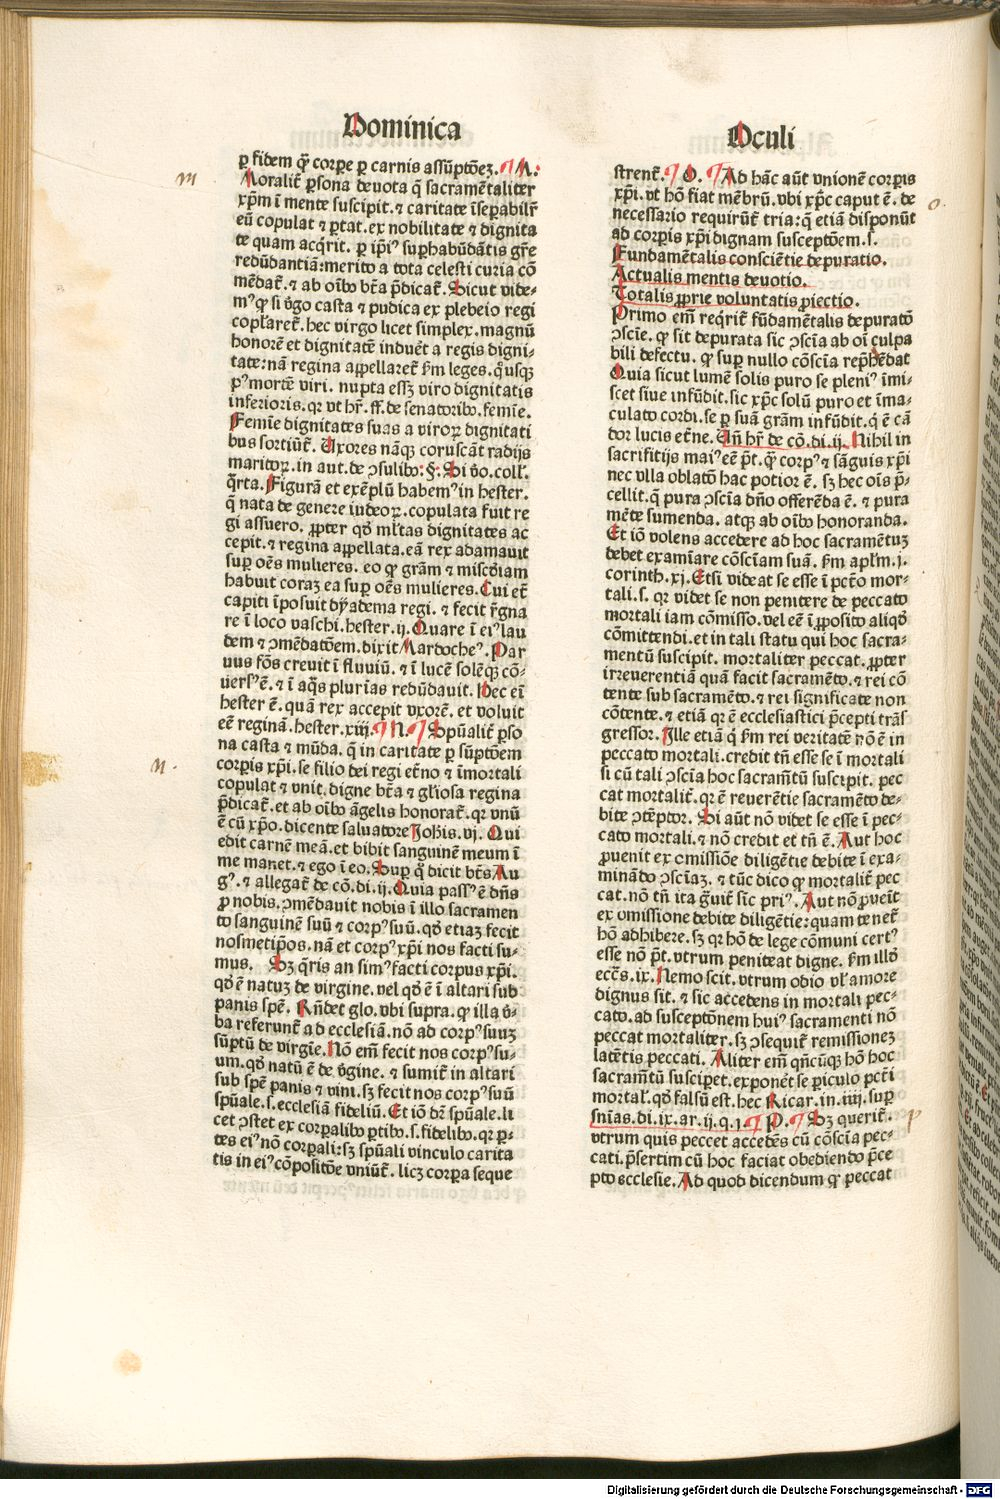 Dominica
ꝑ fidem qͣ corꝑe ꝑ carnis assūptōeʒ. ¶ M.
Moralit̄ ꝑsona deuota q̄ sacramētaliter
xp̄m ī mente suscipit. ⁊ caritate īseꝑabilr̄
eū copulat̄ ⁊ ꝑtat. ex nobilitate ⁊ dignita
te quam acq̄rit. ꝑ ip̄iꝰ suꝑhabūdātis gr̄e
redūdantiā: merito a tota celesti curia cō
mēdat̄. ⁊ ab oībo bt̄a p̄dicat̄. Sicut vide-
mꝰ ꝙ si v̄go casta ⁊ pudica ex plebeio regi
copl̄aret̄. hec virgo licet simplex. magnū
honorē et dignitatē induēt a regis digni-
tate: nā regina appellaret̄ ẜm leges. q̊usqȝ
pꝰ mortē viri. nupta essʒ viro dignitatis
inferioris. qr vt hr̄. ff. de senatoribo. femīe.
Femīe dignitates suas a viroꝝ dignitati
bus sortiūt̄. Uxores nāqȝ coruscāt radijs
maritoꝝ. in aut. de ↄsulibo: §. Si v̄o. coll̄.
q̄rta. Figurā et exēplū habemꝰ in hester.
q̄ nata de genere iudeoꝝ. copulata fuit re
gi assuero. ꝓpter qd̄ ml̄tas dignitates ac
cepit. ⁊ regina appellata. eā rex adamauit
suꝑ oēs mulieres. eo ꝙ grām ⁊ misc̄diam
habuit coraʒ ea suꝑ oēs mulieres. Cui et̄
capiti īposuit dyadema regi. ⁊ fecit r̄gna
re ī loco vaschi. hester. ij. Quare ī eiꝰ lau
dem ⁊ ↄmēdatōem. dixit Mardocheꝰ. Par
uus fōs creuit ī fluuiū. ⁊ ī lucē solēqȝ cō-
uersꝰ ē. ⁊ ī aq̄s plurīas redūdauit. Hec eī
hester ē. quā rex accepit vxorē. et voluit
eē reginā. hester. xiij. ¶ N. ¶ Spūalit̄ ꝑso
na casta ⁊ mūda. q̄ in caritate ꝑ sūptōem
corꝑis xp̄i. se filio dei regi et̄no ⁊ īmortali
copulat ⁊ vnit. digne bt̄a ⁊ gl̄iosa regina
p̄dicat̄. et ab oībo āgelis honorat̄. qr vnū
ē cū xp̄o. dicente saluatore Joh̄is. vj. Qui
edit carnē meā. et bibit sanguinē meum ī
me manet. ⁊ ego ī eo. Suꝑ q̊ dicit bt̄s Au
gꝰ. ⁊ allegat̄ de cō. di. ij. Quia passꝰ ē dn̄s
ꝓ nobis. ↄmēdauit nobis ī illo sacramen
to sanguinē suū ⁊ corpꝰ suū. qd̄ etiaʒ fecit
nosmetip̄os. nā et corpꝰ xp̄i nos facti su-
mus. Sʒ q̄ris an simꝰ facti corpus xp̄i.
qd̄ ē natuʒ de virgine. vel qd̄ ē ī altari sub
panis spē. Rn̄det glo. vbi supra. ꝙ illa v̄-
ba referunt̄ ad ecclesiā. nō ad corpꝰ suuʒ
sūptū de virgīe. Nō em̄ fecit nos corpꝰ su-
um. qd̄ natū ē de v̄gine. ⁊ sumit̄ in altari
sub spē panis ⁊ vini. sʒ fecit nos corpꝰ suū
spūale. s. ecclesiā fideliū. Et iō dr̄ spūale. li
cet ↄstet ex corꝑalibo ꝑtibo. s. fidelibo. qr ꝑ-
tes eiꝰ nō corꝑali: sʒ spūali vinculo carita
tis in eiꝰ cōpositōe vniūt̄. licʒ corꝑa seque
m
n.
Oculi
strent̄. ¶ O. ¶ Ad hāc aūt vnionē corꝑis
xp̄i. vt hō fiat mēbrū. vbi xp̄c caput ē. de
necessario requirūt̄ tria: q̄ etiā disponūt
ad corꝑis xp̄i dignam susceptōem. s.
Fundamētalis consciētie depuratio.
Actualis mentis deuotio.
Totalis ꝓprie voluntatis ꝓiectio.
Primo em̄ reqͥrit̄ fūdamētalis depuratō
ↄscīe. ꝙ sit depurata sic ↄscīa ab oī culpa
bili defectu. ꝙ suꝑ nullo cōscīa rep̄hēdat
Quia sicut lumē solis puro se pleniꝰ īmi-
scet siue infūdit. sic xp̄c solū puro et īma-
culato cordi. se ꝑ suā grām infūdit. q̄ ē cā
dor lucis et̄ne. Un̄ hr̄ de cō. di. ij. Nihil in
sacrificijs maiꝰ eē p̄t. qͣ corpꝰ ⁊ sāguis xp̄i
nec vlla oblatō hac potior ē. sʒ hec oīs p̄-
cellit. q̄ pura ↄscīa dn̄o offerēda ē. ⁊ pura
mēte sumenda. atqȝ ab oībo honoranda.
Et iō volens accedere ad hoc sacramētuʒ
debet examīare cōscīam suā. ẜm apl̄m. j.
corinth. xj. Etsi videat se esse ī pct̄o mor-
tali. s. qr videt se non penitere de peccato
mortali iam cōmisso. vel eē ī ꝓposito aliqd̄
cōmittendi. et in tali statu qui hoc sacra-
mentū suscipit. mortaliter peccat. ꝓpter
irreuerentiā quā facit sacramēto. ⁊ rei cō
tente sub sacramēto. ⁊ rei significate non
cōtente. ⁊ etiā qr ē ecclesiastici p̄cepti trās
gressor. Ille etiā q̄ ẜm rei veritatē nō ē in
peccato mortali. credit tn̄ esse se ī mortali
si cū tali ↄscīa hoc sacramtū suscipit. pec
cat mortalit̄. qr ē reuerētie sacramēto de-
bite ↄtēptor. Si aūt nō videt se esse ī pec-
cato mortali. ⁊ nō credit et tn̄ ē. Aut hoc
ꝓuenit ex omissiōe diligētie debite ī exa-
minādo ↄscīaʒ. ⁊ tūc dico ꝙ mortalit̄ pec
cat. nō tn̄ ita g̊uit̄ sic priꝰ. Aut nō ꝓueīt
ex omissione debite diligētie: quam tenet̄
hō adhibere. sʒ qr hō de lege cōmuni certꝰ
esse nō p̄t. vtrum peniteat digne. ẜm illd̄
ecc̄s. ix. Nemo scit. vtrum odio vl̓ amore
dignus sit. ⁊ sic accedens in mortali pec-
cato. ad susceptōnem huiꝰ sacramenti nō
peccat mortaliter. sʒ ↄsequit̄ remissioneʒ
latētis peccati. Aliter em̄ qn̄cūqȝ hō hoc
sacramtū susciꝑet. exponēt se ꝑiculo pct̄i
mortal̓. qd̄ falsū est. hec Ricar. in. iiij. suꝑ
sn̄ias. di. ix. ar. ij. q. 1. ¶ P. ¶ Sʒ querit̄.
vtrum quis peccet accedēs cū cōscīa pec-
cati. p̄sertim cū hoc faciat obediendo p̄ce
pto ecclesie. Ad quod dicendum ꝙ peccat
o.
p
Digitalisierung gefördert durch die Deutsche Forschungsgemeinschaft - DFG